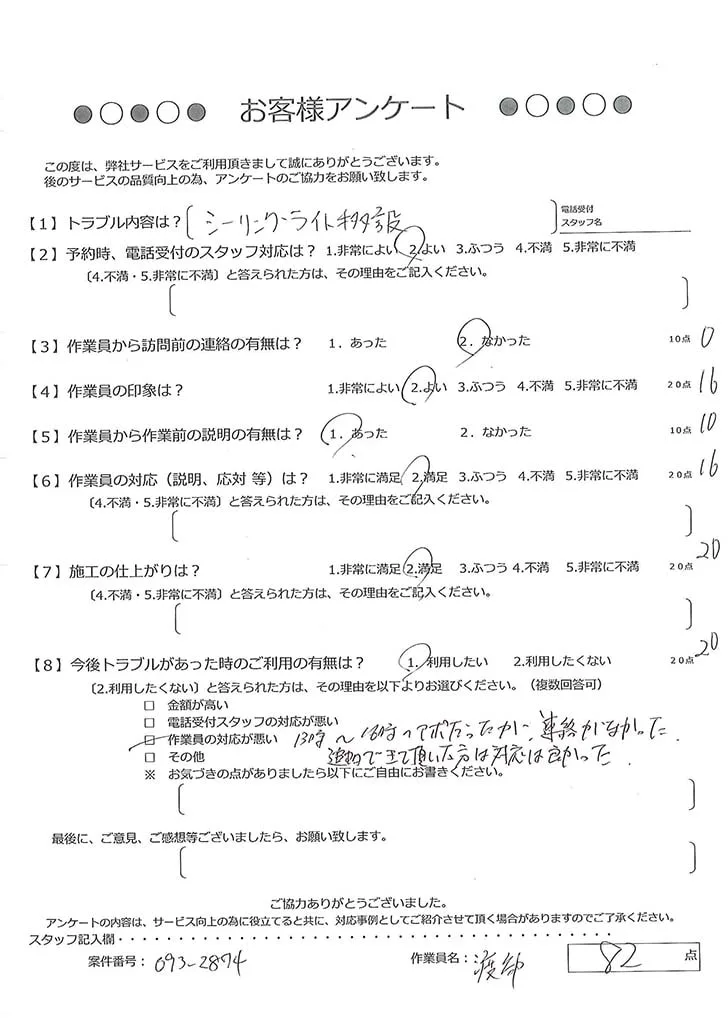 ●○●○● お客様アンケート ●○●○●
この度は、弊社サービスをご利用頂きまして誠にありがとうございます。
後のサービスの品質向上の為、アンケートのご協力をお願い致します。
【1】トラブル内容は？ 〔シーリングライト移設〕 電話受付スタッフ名
【2】予約時、電話受付のスタッフ対応は？ 1.非常によい 2.よい 3.ふつう 4.不満 5.非常に不満
〔4.不満・5.非常に不満〕と答えられた方は、その理由をご記入ください。
【3】作業員から訪問前の連絡の有無は？ 1．あった 2．なかった 10点 0
【4】作業員の印象は？ 1.非常によい 2.よい 3.ふつう 4.不満 5.非常に不満 20点 16
【5】作業員から作業前の説明の有無は？ 1．あった 2．なかった 10点 10
【6】作業員の対応（説明、応対 等）は？ 1.非常に満足 2.満足 3.ふつう 4.不満 5.非常に不満 20点 16
〔4.不満・5.非常に不満〕と答えられた方は、その理由をご記入ください。
【7】施工の仕上がりは？ 1.非常に満足 2.満足 3.ふつう 4.不満 5.非常に不満 20点 20
〔4.不満・5.非常に不満〕と答えられた方は、その理由をご記入ください。
【8】今後トラブルがあった時のご利用の有無は？ 1．利用したい 2.利用したくない 20点 20
〔2.利用したくない〕と答えられた方は、その理由を以下よりお選びください。（複数回答可）
□ 金額が高い
□ 電話受付スタッフの対応が悪い
□ 作業員の対応が悪い 13時〜16時のアポだったが、連絡がなかった.
□ その他 で来て頂いた方は対応は良かった.
※ お気づきの点がありましたら以下にご自由にお書きください。
最後に、ご意見、ご感想等ございましたら、お願い致します。
ご協力ありがとうございました。
アンケートの内容は、サービス向上の為に役立てると共に、対応事例としてご紹介させて頂く場合がありますのでご了承ください。
スタッフ記入欄・・・・・・・・・・・・・・・・・・・・・・・・・・・・・・・・・・・・・・・・
案件番号： 093-2874 作業員名： 渡部 82 点